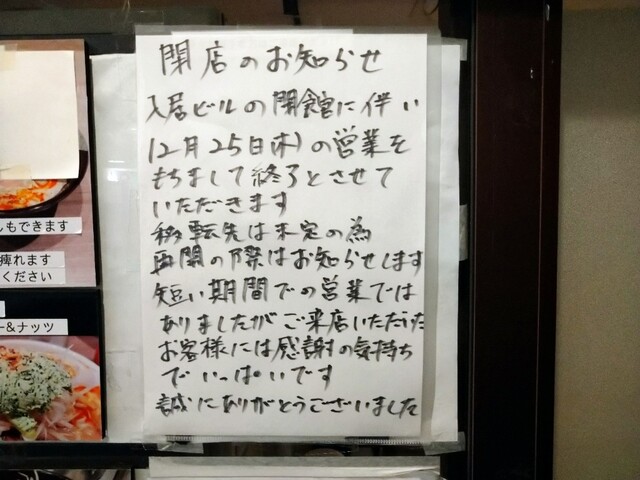 閉店のお知らせ
入居ビルの閉館に伴い
12月25日(木)の営業を
もちまして終了とさせて
いただきます
移転先は未定の為
再開の際はお知らせします
短い期間での営業では
ありましたがご来店いただいた
お客様には感謝の気持ち
でいっぱいです
誠にありがとうございました
しもできます
痺れます
ください
ー&ナッツ